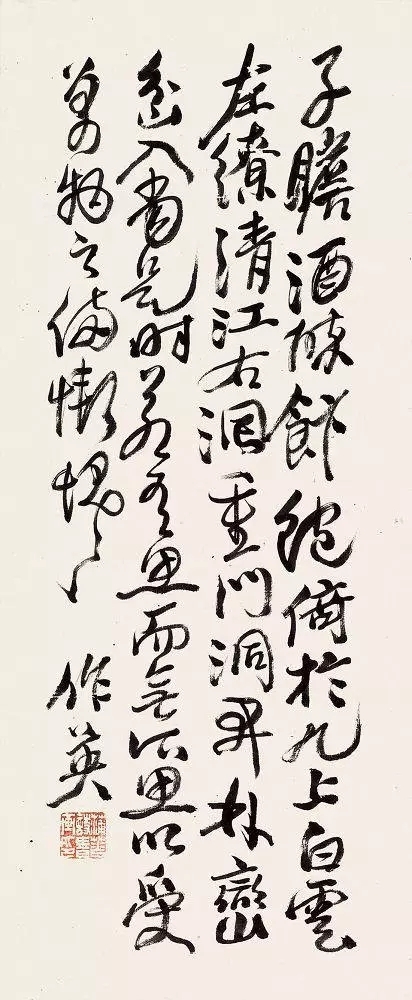 子瞻酒醉飯飽倚於几上白雲
左繚清江右洄重門洞開林巒
坌入當是時若有思而無所思以受
萬物之備慚愧〻 作英